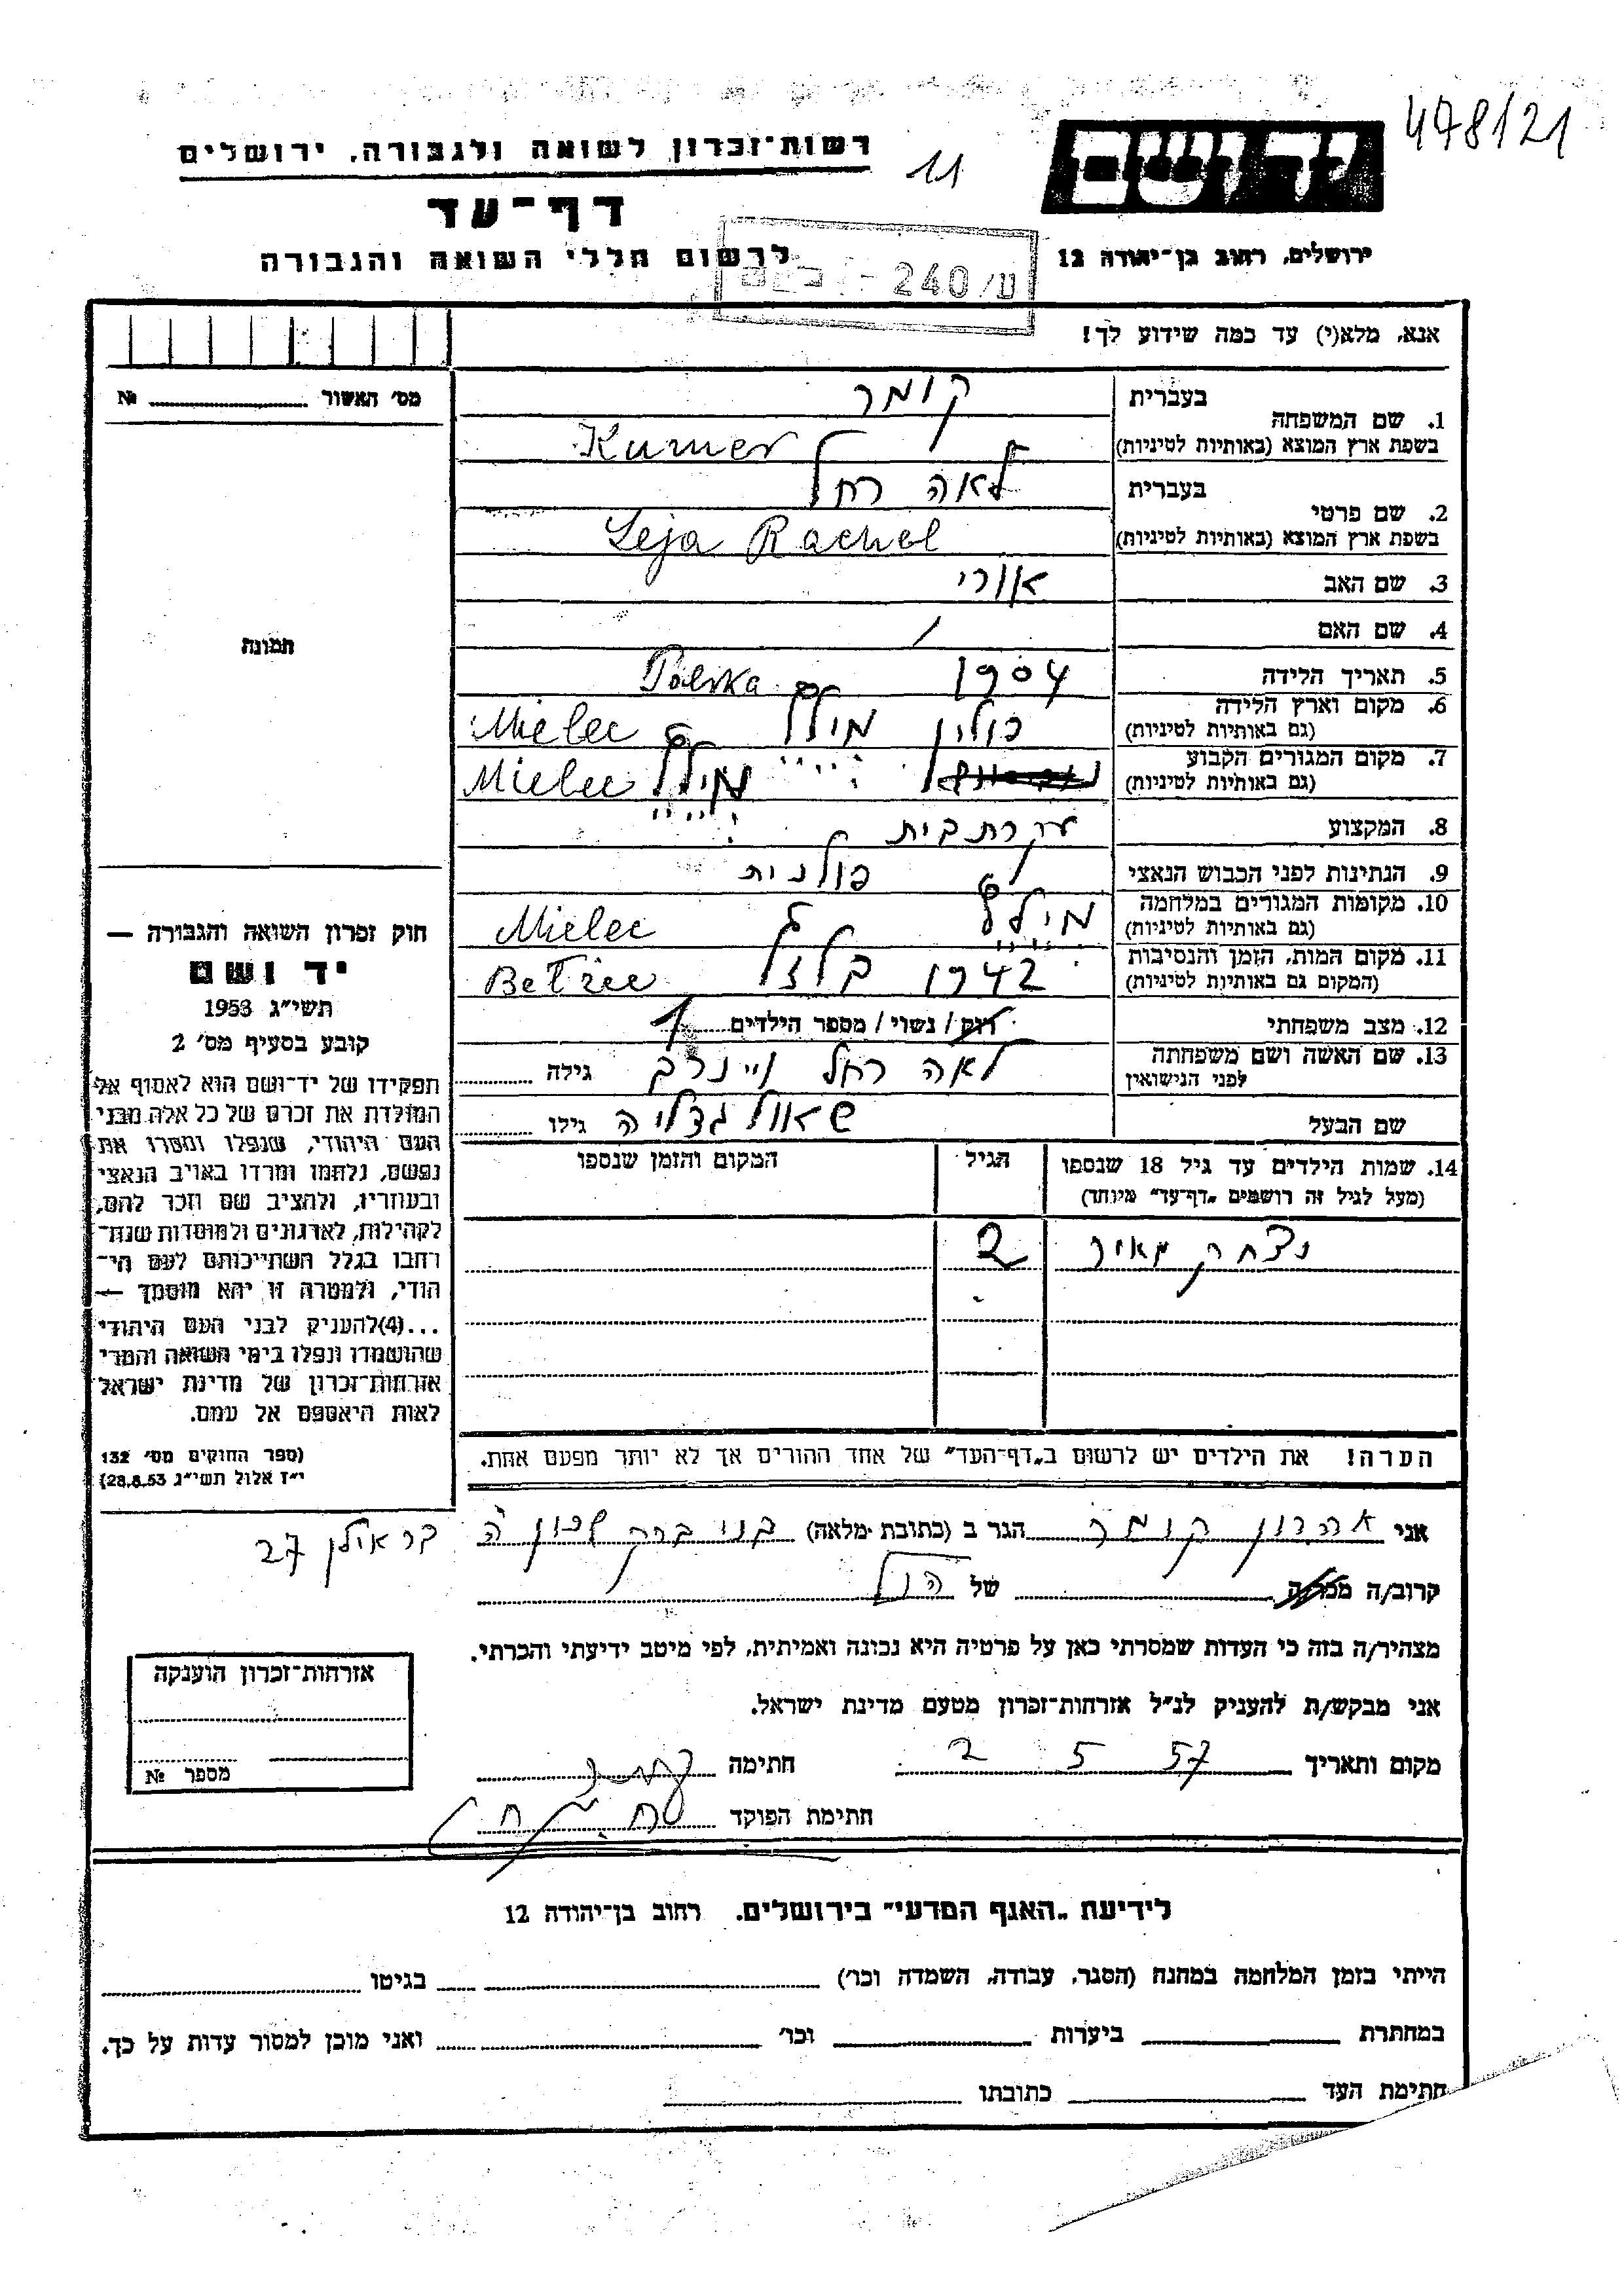 478/21
יד ושם
רשות־זכרון לשואה ולגבורה, ירושלים
11
דף־עד
ירושלים, רחוב בן־יהודה 12
לרשום חללי השואה והגבורה
ע/240
אנא, מלא(י) עד כמה שידוע לך!
מס' האשור № 
בעברית קומר
1. שם המשפחה
בשפת ארץ המוצא (באותיות לטיניות) Kumer
בעברית לאה רחל
2. שם פרטי
בשפת ארץ המוצא (באותיות לטיניות) Leja Rachel
3. שם האב אורי
4. שם האם /
תמונה
5. תאריך הלידה 1904 Polska
6. מקום וארץ הלידה
(גם באותיות לטיניות) פולין מילץ Mielec
7. מקום המגורים הקבוע
(גם באותיות לטיניות) מילץ Mielec
8. המקצוע עקרת בית
9. הנתינות לפני הכבוש הנאצי פולנית
10. מקומות המגורים במלחמה
(גם באותיות לטיניות) מילץ Mielec
11. מקום המות, הזמן והנסיבות
(המקום גם באותיות לטיניות) 1942 בלזץ
12. מצב משפחתי רוק/נשוי/מספר הילדים 1
13. שם האשה ושם משפחתה
לפני הנישואין לאה רחל גילה
שם הבעל שאול גדליה גילו
14. שמות הילדים עד גיל 18 שנספו
(מעל לגיל זה רושמים „דף־עד” מיוחד)
הגיל
המקום והזמן שנספו
יצחק מאיר 2
הערה! את הילדים יש לרשום ב„דף־העד” של אחד ההורים אך לא יותר מפעם אחת.
חוק זכרון השואה והגבורה —
יד ושם
תשי״ג 1953
קובע בסעיף מס' 2
תפקידו של יד־ושם הוא לאסוף אל
המולדת את זכרם של כל אלה מבני
העם היהודי, שנפלו ומסרו את
נפשם, נלחמו ומרדו באויב הנאצי
ובעוזריו, ולהציב שם וזכר להם,
לקהילות, לארגונים ולמוסדות שנח־
רבו בגלל השתייכותם לעם הי־
הודי, ולמטרה זו יהא מוסמך —
...(4)להעניק לבני העם היהודי
שהושמדו ונפלו בימי השואה והמרי
אזרחות־זכרון של מדינת ישראל
לאות היאספם אל עמם.
(ספר החוקים מס' 132
י״ז אלול תשי״ג 28.8.53)
אני אהרון קומר הגר ב (כתובת מלאה) בני ברק שכון ה' בר אילן 27
קרוב/ה מכר/ה של הנ״ל
מצהיר/ה בזה כי העדות שמסרתי כאן על פרטיה היא נכונה ואמיתית, לפי מיטב ידיעתי והכרתי.
אני מבקש/ת להעניק לנ״ל אזרחות־זכרון מטעם מדינת ישראל.
מקום ותאריך 2 5 57 חתימה
חתימת הפוקד
אזרחות־זכרון הוענקה
מספר №
לידיעת „האגף המדעי” בירושלים. רחוב בן־יהודה 12
הייתי בזמן המלחמה במחנה (הסגר, עבודה, השמדה וכו') בגיטו
במחתרת ביערות וכו' ואני מוכן למסור עדות על כך.
חתימת העד כתובתו